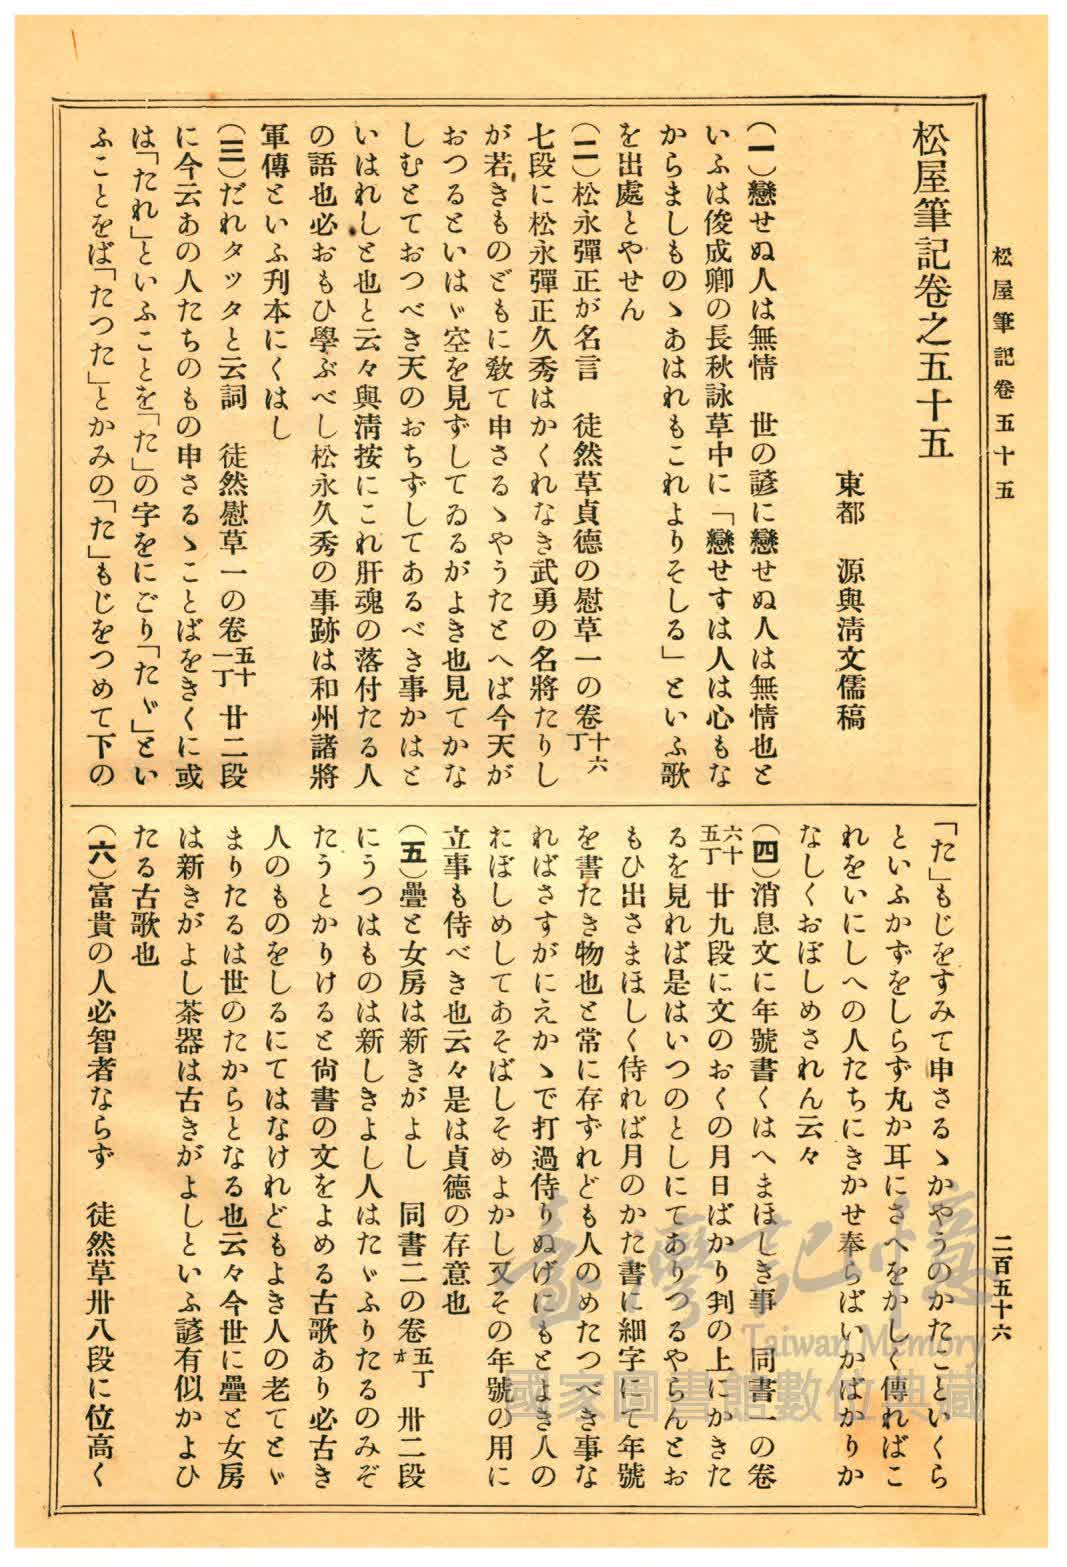 松屋筆記卷五十五
二百五十六
松屋筆記卷之五十五
東都　源與淸文儒稿
(一)戀せぬ人は無情　世の諺に戀せぬ人は無情也と
いふは俊成卿の長秋詠草中に「戀せすは人は心もな
からましものゝあはれもこれよりそしる」といふ歌
を出處とやせん
(二)松永彈正が名言　徒然草貞德の慰草一の卷十六丁
七段に松永彈正久秀はかくれなき武勇の名將たりし
が若きものどもに敎て申さるゝやうたとへば今天が
おつるといはゞ空を見ずしてゐるがよき也見てかな
しむとておつべき天のおちずしてあるべき事かはと
いはれしと也と云々與淸按にこれ肝魂の落付たる人
の語也必おもひ學ぶべし松永久秀の事跡は和州諸將
軍傳といふ刋本にくはし
(三)だれタッタと云詞　徒然慰草一の卷五十一丁 廿二段
に今云あの人たちのもの申さるゝことばをきくに或
は「たれ」といふことを「た」の字をにごり「たゞ」とい
ふことをば「たつた」とかみの「た」もじをつめて下の
「た」もじをすみて申さるゝかやうのかたこといくら
といふかずをしらず丸か耳にさへをかしく傳ればこ
れをいにしへの人たちにきかせ奉らばいかばかりか
なしくおぼしめされん云々
(四)消息文に年號書くはへまほしき事　同書一の卷
六十五丁 廿九段に文のおくの月日ばかり判の上にかきた
るを見れば是はいつのとしにてありつるやらんとお
もひ出さまほしく侍れば月のかた書に細字にて年號
を書たき物也と常に存ずれども人のめたつべき事な
ればさすがにえかゝで打過侍りぬげにもとよき人の
おぼしめしてあそばしそめよかし又その年號の用に
立事も侍べき也云々是は貞德の存意也
(五)疊と女房は新きがよし　同書二の卷五丁オ 卅二段
にうつはものは新しきよし人はたゞふりたるのみぞ
たうとかりけると尙書の文をよめる古歌あり必古き
人のものをしるにてはなけれどもよき人の老てとゞ
まりたるは世のたからとなる也云々今世に疊と女房
は新きがよし茶器は古きがよしといふ諺有似かよひ
たる古歌也
(六)富貴の人必智者ならず　徒然草卅八段に位高く
臺灣記憶
Taiwan Memory
國家圖書館數位典藏